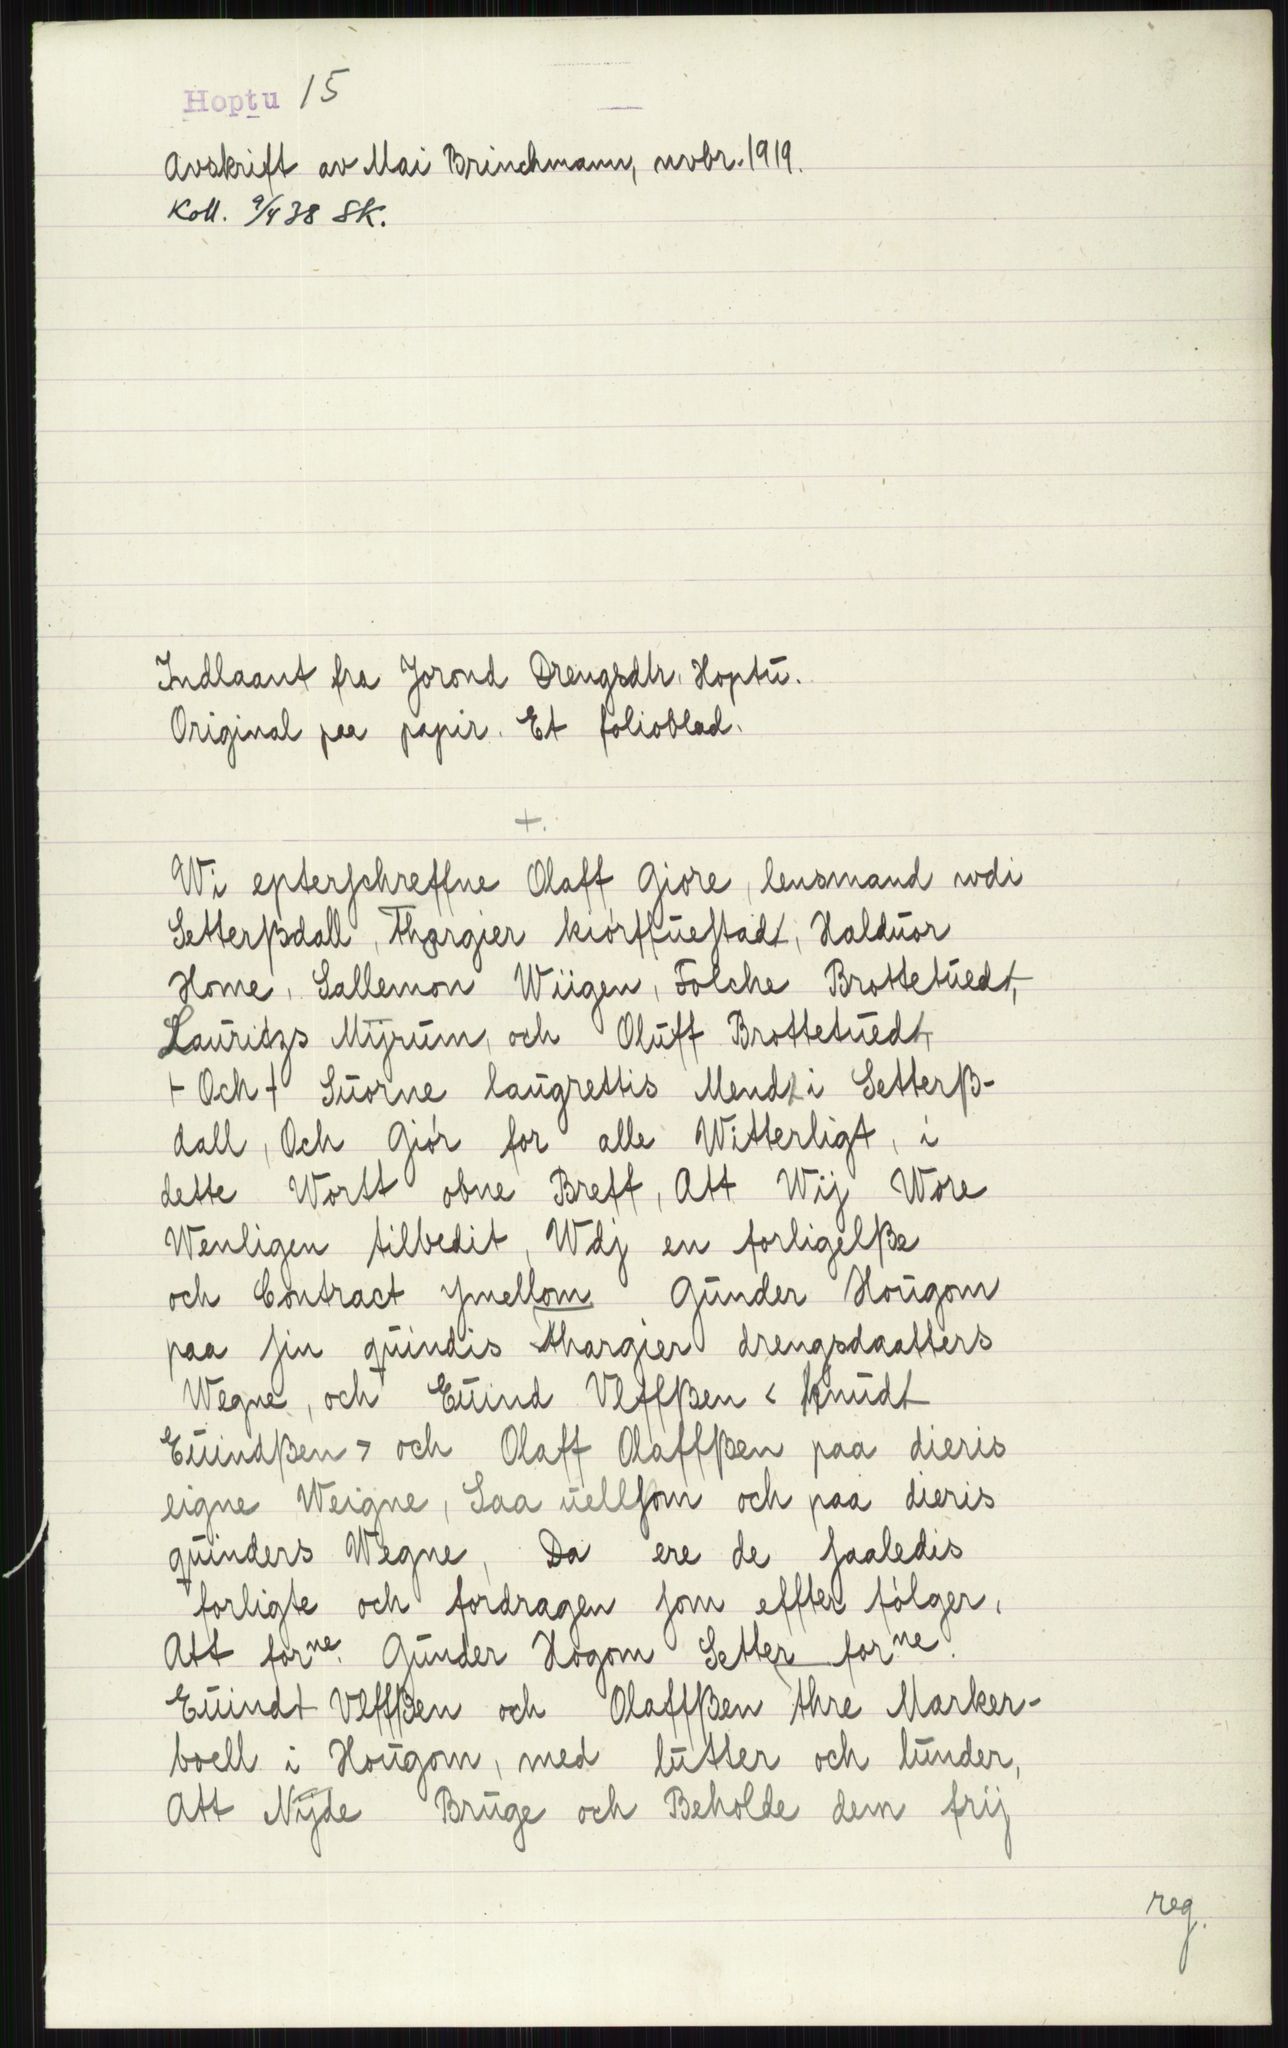 Hoptu 15
Avskrift av Mai Brinchmann, novbr. 1919.
Koll. 9/4 38 SK.
Indlaant fra Jorond Drengsdtr. Hoptu.
Original paa papir. Et folioblad.
+.
Wi epterschreffne Olaff Giøre, lensmand wdi
Setterßdall, Thargier kiørffuestadt, Halduor
Home, Sallemon Wiigen, Folche Brottetuedt,
Lauridzs Mÿrum, och Oluff Brottetuedt,
+ Och + Suorne laugrettis Mend i Setterß-
dall, Och Giør for alle Witterligt, i
dette Wortt obne Breff, Att Wij Wore
Wenligen tilbedit, Wdj en forligelße
och Contract ymellom Gunder Hougom
paa sin quindis Thargier drengsdaatters
Wegne, och Euind Vlffßen < knudt
Euindßen > och Olaff Olaffßen paa dieris
eigne Weigne, Saa uellsom och paa dieris
quinders Wegne, Da ere de saaledis
forligte och fordragen som effter følger,
Att forne. Gunder Hogom Setter forne.
Euindt Vlffßen och Olaffßen thre Marker-
boell i Hougom, med lutter och lunder,
Att Nÿde Bruge och Beholde dem frij
reg.